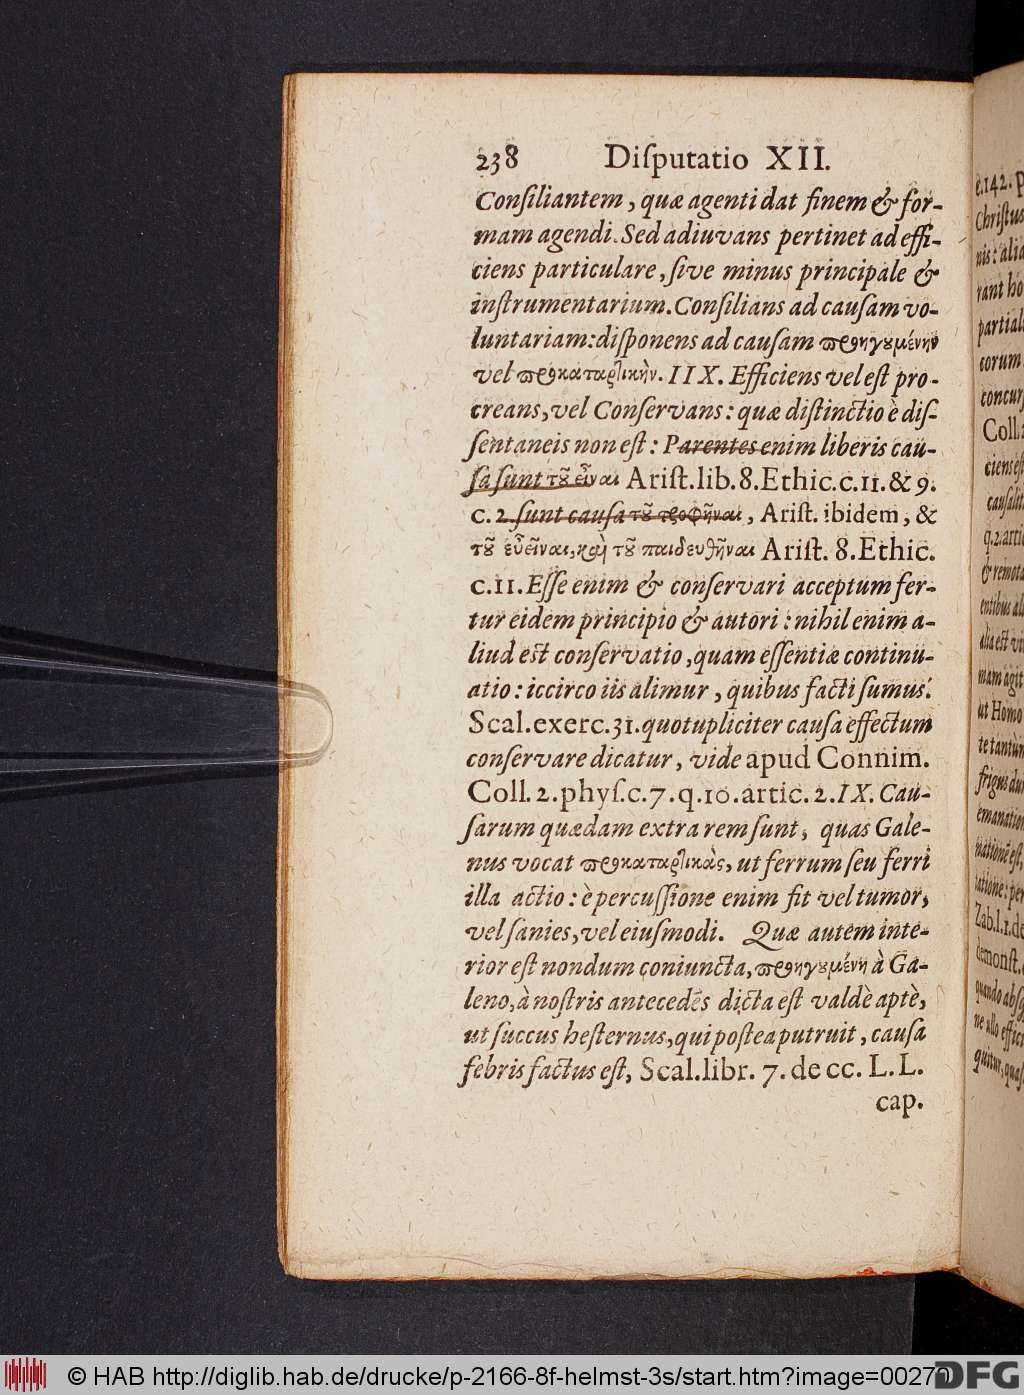 238 Diſputatio XII.
Conſiliantem, quæ agenti dat finem & for-
mam agendi. Sed adiuvans pertinet ad effi-
ciens particulare, ſive minus principale &
inſtrumentarium. Conſilians ad cauſam vo-
luntariam: diſponens ad cauſam προηγουμένην
vel προκαταρκτικὴν. IIX. Efficiens vel eſt pro-
creans, vel Conſervans: quæ diſtinctio è diſ-
ſentaneis non eſt: Parentes enim liberis cau-
ſa ſunt τοῦ εἶναι Ariſt. lib. 8. Ethic. c. 11. & 9.
c. 2. ſunt cauſa τοῦ τροφῆναι, Ariſt. ibidem, &
τοῦ εὖ εἶναι, καὶ τοῦ παιδευθῆναι Ariſt. 8. Ethic.
c. 11. Eſſe enim & conſervari acceptum fer-
tur eidem principio & autori: nihil enim a-
liud eſt conſervatio, quam eſſentiæ continu-
atio: iccirco iis alimur, quibus facti ſumus.
Scal. exerc. 31. quotupliciter cauſa effectum
conſervare dicatur, vide apud Connim.
Coll. 2. phyſ. c. 7. q. 10. artic. 2. IX. Cau-
ſarum quædam extra rem ſunt, quas Gale-
nus vocat προκαταρκτικὰς, ut ferrum ſeu ferri
illa actio: è percuſſione enim fit vel tumor,
vel ſanies, vel eiuſmodi. Quæ autem inte-
rior eſt nondum coniuncta, προηγουμένη à Ga-
leno, à noſtris antecedẽs dicta eſt valdè aptè,
ut ſuccus heſternus, qui poſtea putruit, cauſa
febris factus eſt, Scal. libr. 7. de cc. L. L.
cap.
c. 142. p
Chriſtus
nis: alia
rant ho
partial
corum
concur
Coll. 2
ciens eſt
cauſalit
q. 2. artic
& remota
entibus al
alia eſt vi
mam agit
ut Homo
te tantùm
frigus du
emanation
nationẽ eſt,
tatione: per
Zab. l. 1. de
demonſt.
quando abſq
ne ullo effici
quitur, quaſ
© HAB http://diglib.hab.de/drucke/p-2166-8f-helmst-3s/start.htm?image=00270
DFG